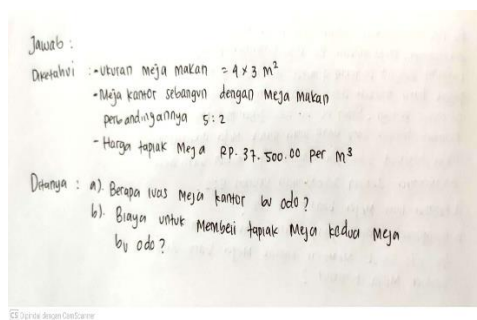 Jawab :
Diketahui : - Ukuran Meja makan = 4 x 3 m²
- Meja kantor sebangun dengan Meja Makan
perbandingannya 5:2
- Harga taplak Meja RP. 37.500.00 per m³
Ditanya : a). Berapa luas Meja kantor bu odo ?
b). Biaya untuk Membeli taplak Meja kedua Meja
bu odo ?
CS Dipindai dengan CamScanner